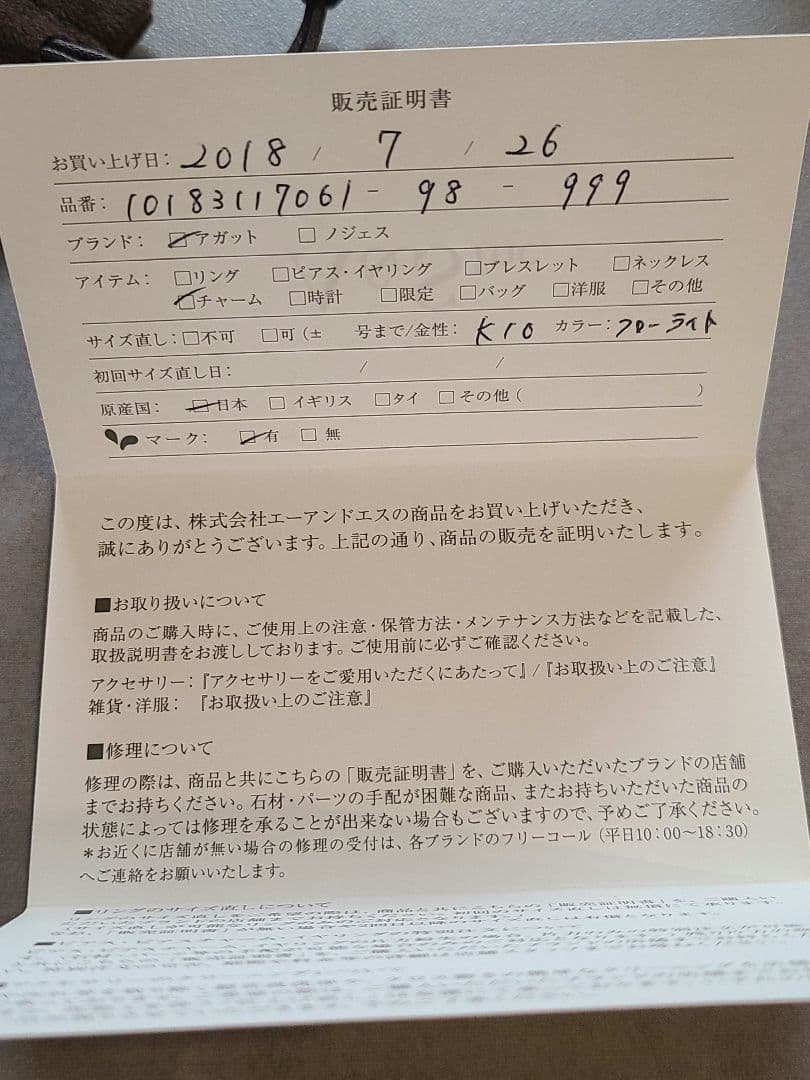 販売証明書
お買い上げ日： 2018 / 7 / 26
品番： 10183117061 - 98 - 999
ブランド： ☑アガット □ノジェス
アイテム： □リング □ピアス・イヤリング □ブレスレット □ネックレス
☑チャーム □時計 □限定 □バッグ □洋服 □その他
サイズ直し：□不可 □可（± 号まで/金性： K10 カラー：フローライト
初回サイズ直し日： / /
原産国： ☑日本 □イギリス □タイ □その他（ ）
マーク： ☑有 □無
この度は、株式会社エーアンドエスの商品をお買い上げいただき、
誠にありがとうございます。上記の通り、商品の販売を証明いたします。
■お取り扱いについて
商品のご購入時に、ご使用上の注意・保管方法・メンテナンス方法などを記載した、
取扱説明書をお渡ししております。ご使用前に必ずご確認ください。
アクセサリー：『アクセサリーをご愛用いただくにあたって』/『お取扱い上のご注意』
雑貨・洋服： 『お取扱い上のご注意』
■修理について
修理の際は、商品と共にこちらの「販売証明書」を、ご購入いただいたブランドの店舗
までお持ちください。石材・パーツの手配が困難な商品、またお持ちいただいた商品の
状態によっては修理を承ることが出来ない場合もございますので、予めご了承ください。
＊お近くに店舗が無い場合の修理の受付は、各ブランドのフリーコール（平日10：00～18：30）
へご連絡をお願いいたします。
■リングのサイズ直しについて